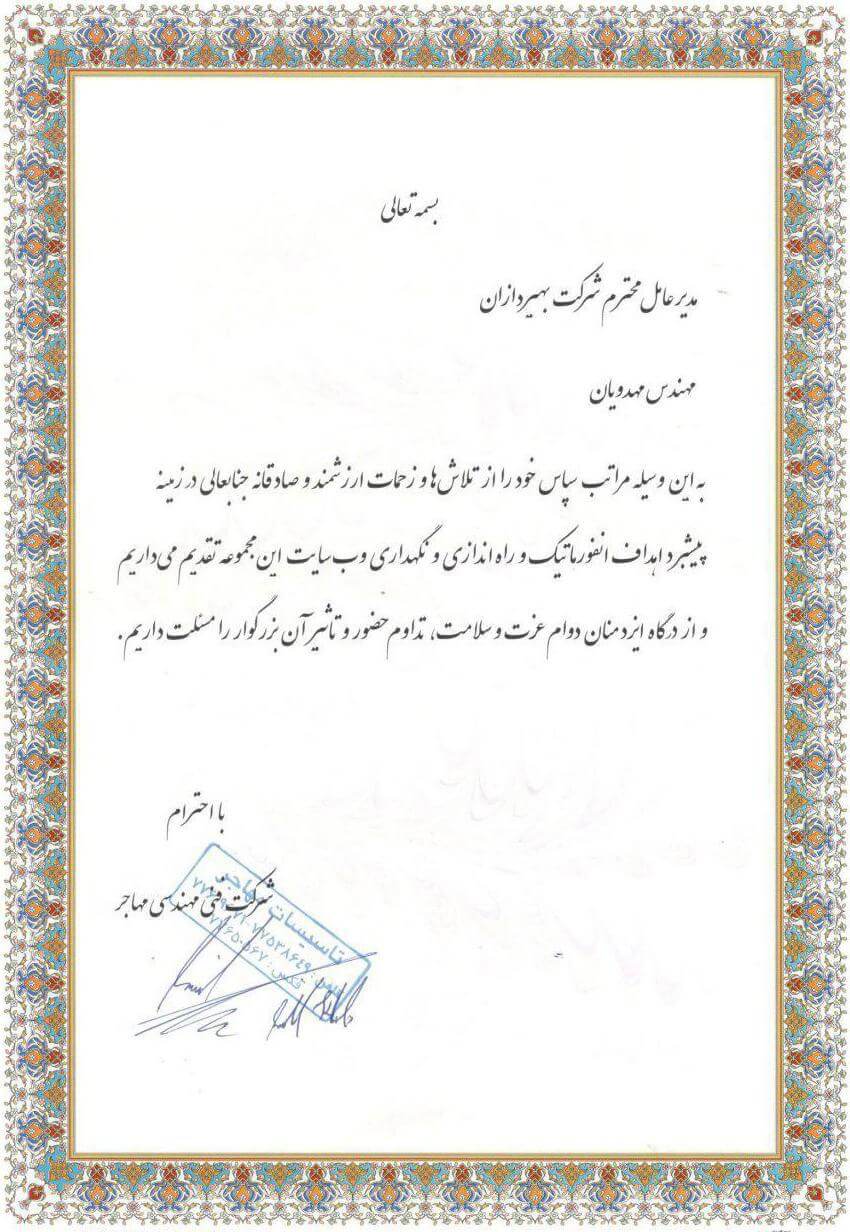 بسمه تعالی
مدیرعامل محترم شرکت بهپردازان
مهندس مهدویان
به این وسیله مراتب سپاس خود را از تلاش‌ها و زحمات ارزشمند و صادقانه جنابعالی در زمینه
پیشبرد اهداف انفورماتیک و راه اندازی و نگهداری وب سایت این مجموعه تقدیم می‌داریم
و از درگاه ایزد منان دوام عزت و سلامت، تداوم حضور و تاثیر آن بزرگوار را مسئلت داریم.
با احترام
شرکت فنی مهندسی مهاجر
تاسیسات مهاجر
۷۷۵۳۸۶۴۹
فکس: ۷۷۶۵۰۵۶۷